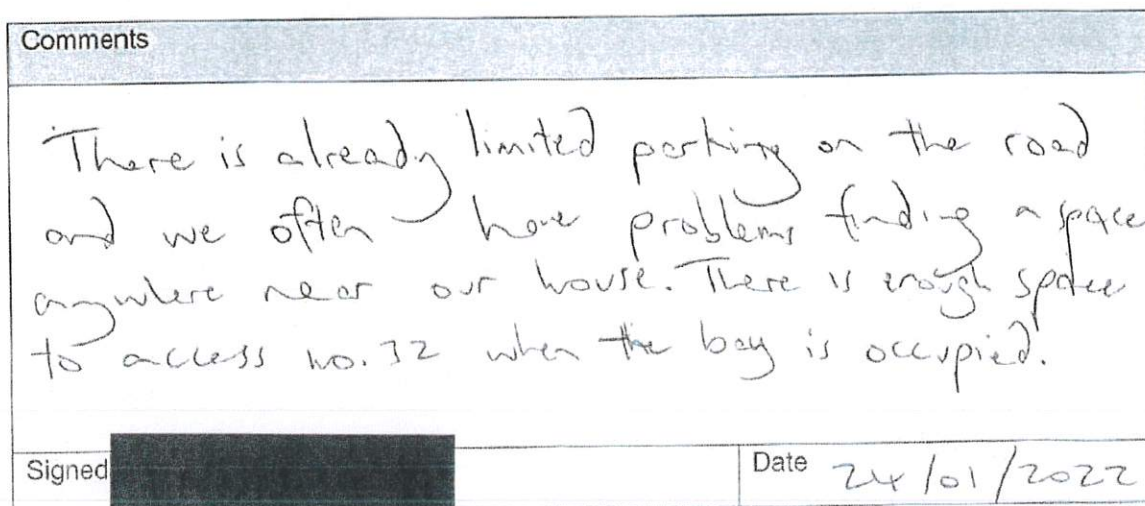 Comments
There is already limited parking on the road
and we often have problems finding a space
anywhere near our house. There is enough space
to access no. 32 when the bay is occupied.
Signed
Date 24/01/2022